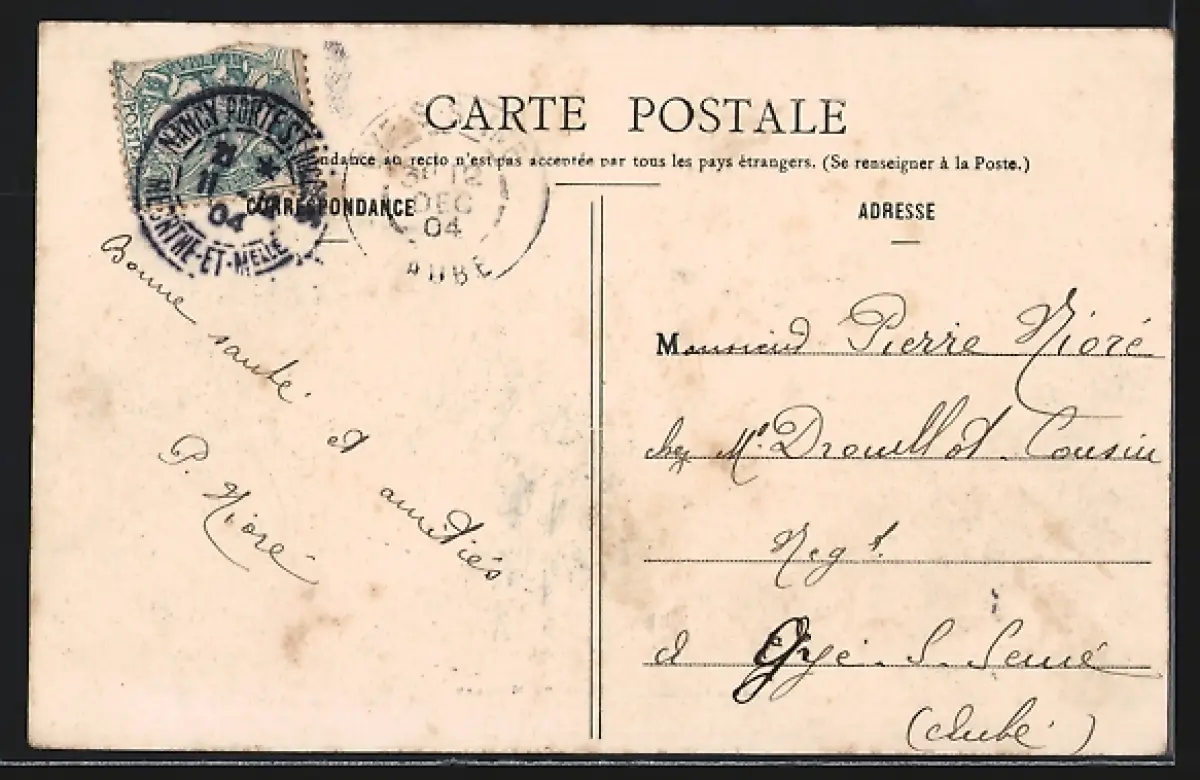 CARTE POSTALE
ndance au recto n'est pas acceptée par tous les pays étrangers. (Se renseigner à la Poste.)
CORRESPONDANCE
ADRESSE
NANCY PORTE ST
11
04
MEURTHE-ET-MELLE
3E 12
DEC
04
AUBE
POSTE
Bonne santé
et
amitiés
P. Nioré
Monsieur Pierre Nioré
chez Mr Drouillot Cousin
Negt
à Gyé-S-Seine
(Aube)